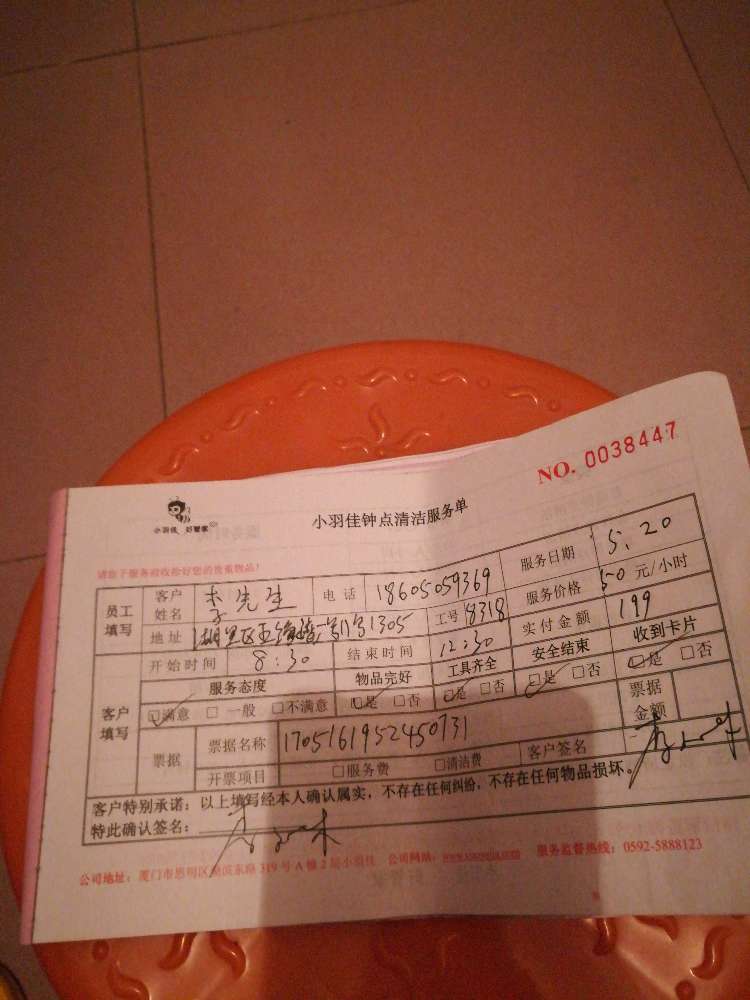 NO. 0038447
小羽佳 好管家
小羽佳钟点清洁服务单
请您于服务前收检好您的贵重物品!
员工填写 客户姓名 李先生 电话 18605059369 服务日期 5.20
地址 1305 工号 8318 服务价格 50 元/小时
开始时间 8:30 结束时间 12:30 实付金额 199
客户填写 服务态度 物品完好 工具齐全 安全结束 收到卡片
☑满意 □一般 □不满意 ☑是 □否 ☑是 □否 ☑是 □否 ☑是 □否
票据 票据名称 1705161952450731 票据金额
开票项目 □服务费 □清洁费 客户签名
客户特别承诺：以上填写经本人确认属实，不存在任何纠纷，不存在任何物品损坏。
特此确认签名：
公司地址：厦门市思明区湖滨东路 319 号 A 幢 2 层小羽佳 公司网站： 服务监督热线：0592-5888123